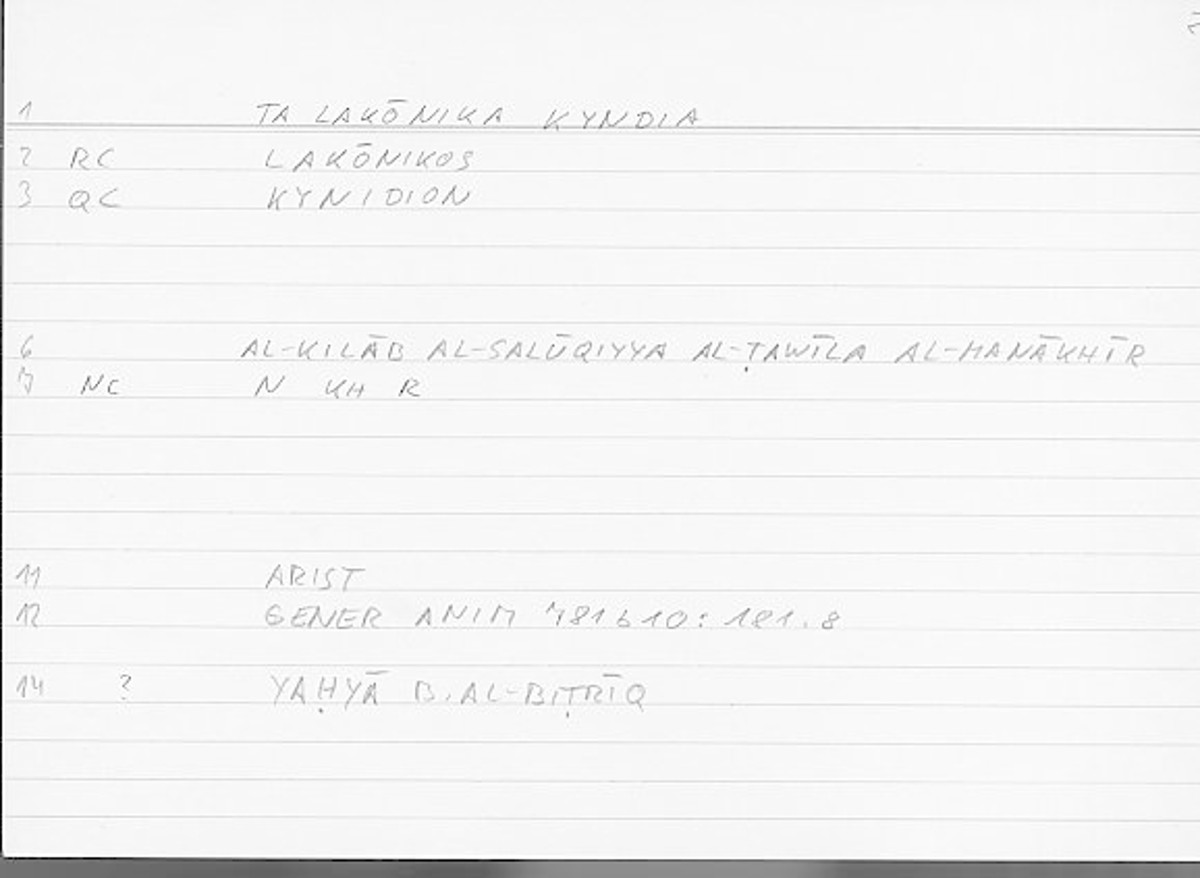 1 TA LAKŌNIKA KYNDIA
2 RC LAKŌNIKOS
3 QC KYNIDION
6 AL-KILĀB AL-SALŪQIYYA AL-ṬAWĪLA AL-MANĀKHĪR
7 NC N KH R
11 ARIST
12 GENER ANIM 781b10: 181.8
14 ? YAḤYĀ B. AL-BIṬRĪQ